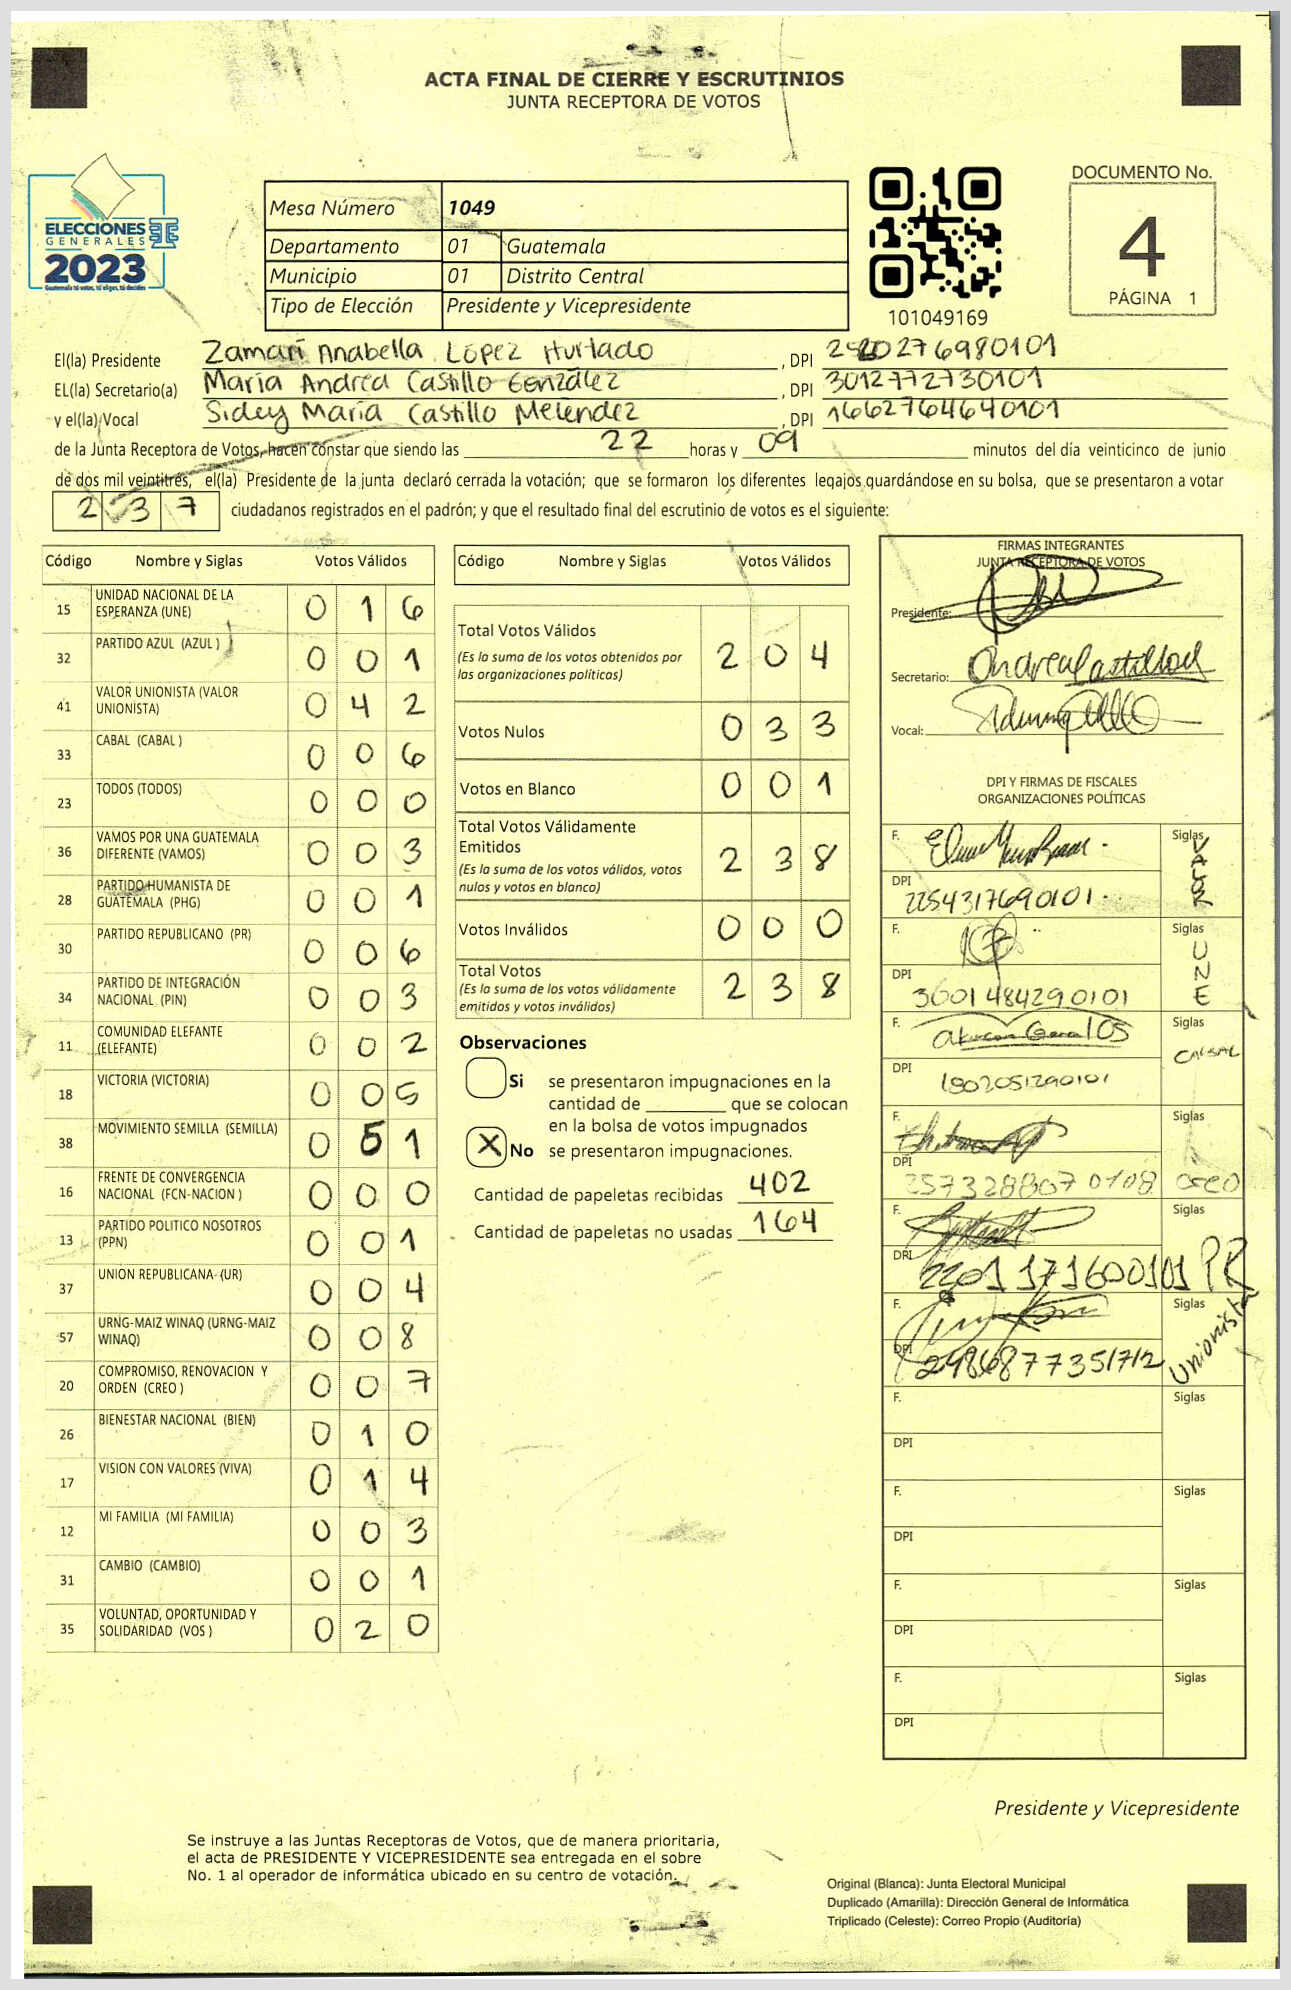 ACTA FINAL DE CIERRE Y ESCRUTINIOS
JUNTA RECEPTORA DE VOTOS
ELECCIONES
GENERALES
2023
Guatemala tú votas, tú eliges, tú decides
Mesa Número 1049
Departamento 01 Guatemala
Municipio 01 Distrito Central
Tipo de Elección Presidente y Vicepresidente
101049169
DOCUMENTO No.
4
PÁGINA 1
El(la) Presidente Zamari Anabella López Hurtado, DPI
EL(la) Secretario(a) María Andrea Castillo González, DPI 3012772730101
y el(la) Vocal Sidey María Castillo Meléndez, DPI 1662764640101
de la Junta Receptora de Votos, hacen constar que siendo las 22 horas y 09 minutos del día veinticinco de junio
de dos mil veintitrés, el(la) Presidente de la junta declaró cerrada la votación; que se formaron los diferentes legajos guardándose en su bolsa, que se presentaron a votar
237 ciudadanos registrados en el padrón; y que el resultado final del escrutinio de votos es el siguiente:
Código Nombre y Siglas Votos Válidos
15 UNIDAD NACIONAL DE LA ESPERANZA (UNE) 0 1 6
32 PARTIDO AZUL (AZUL ) 0 0 1
41 VALOR UNIONISTA (VALOR UNIONISTA) 0 4 2
33 CABAL (CABAL ) 0 0 6
23 TODOS (TODOS) 0 0 0
36 VAMOS POR UNA GUATEMALA DIFERENTE (VAMOS) 0 0 3
28 PARTIDO HUMANISTA DE GUATEMALA (PHG) 0 0 1
30 PARTIDO REPUBLICANO (PR) 0 0 6
34 PARTIDO DE INTEGRACIÓN NACIONAL (PIN) 0 0 3
11 COMUNIDAD ELEFANTE (ELEFANTE) 0 0 2
18 VICTORIA (VICTORIA) 0 0 5
38 MOVIMIENTO SEMILLA (SEMILLA) 0 5 1
16 FRENTE DE CONVERGENCIA NACIONAL (FCN-NACION ) 0 0 0
13 PARTIDO POLITICO NOSOTROS (PPN) 0 0 1
37 UNION REPUBLICANA (UR) 0 0 4
57 URNG-MAIZ WINAQ (URNG-MAIZ WINAQ) 0 0 8
20 COMPROMISO, RENOVACION Y ORDEN (CREO ) 0 0 7
26 BIENESTAR NACIONAL (BIEN) 0 1 0
17 VISION CON VALORES (VIVA) 0 1 4
12 MI FAMILIA (MI FAMILIA) 0 0 3
31 CAMBIO (CAMBIO) 0 0 1
35 VOLUNTAD, OPORTUNIDAD Y SOLIDARIDAD (VOS ) 0 2 0
Código Nombre y Siglas Votos Válidos
Total Votos Válidos 2 0 4
(Es la suma de los votos obtenidos por
las organizaciones políticas)
Votos Nulos 0 3 3
Votos en Blanco 0 0 1
Total Votos Válidamente
Emitidos 2 3 8
(Es la suma de los votos válidos, votos
nulos y votos en blanco)
Votos Inválidos 0 0 0
Total Votos 2 3 8
(Es la suma de los votos válidamente
emitidos y votos inválidos)
Observaciones
Si se presentaron impugnaciones en la
cantidad de ________ que se colocan
en la bolsa de votos impugnados
X No se presentaron impugnaciones.
Cantidad de papeletas recibidas 402
Cantidad de papeletas no usadas 164
FIRMAS INTEGRANTES
JUNTA RECEPTORA DE VOTOS
Presidente:
Secretario: Andrea Castillo
Vocal:
DPI Y FIRMAS DE FISCALES
ORGANIZACIONES POLÍTICAS
F. Siglas VALOR
DPI 2254317690101
F. Siglas UNE
DPI 3601484290101
F. Siglas CABAL
DPI 1802051290101
F. Siglas CREO
DPI 2573288070108
F. Siglas PR
DPI 2201171600101
F. Siglas Unionista
DPI 2486877351712
F. Siglas
DPI
F. Siglas
DPI
F. Siglas
DPI
F. Siglas
DPI
Presidente y Vicepresidente
Se instruye a las Juntas Receptoras de Votos, que de manera prioritaria,
el acta de PRESIDENTE Y VICEPRESIDENTE sea entregada en el sobre
No. 1 al operador de informática ubicado en su centro de votación.
Original (Blanca): Junta Electoral Municipal
Duplicado (Amarilla): Dirección General de Informática
Triplicado (Celeste): Correo Propio (Auditoría)